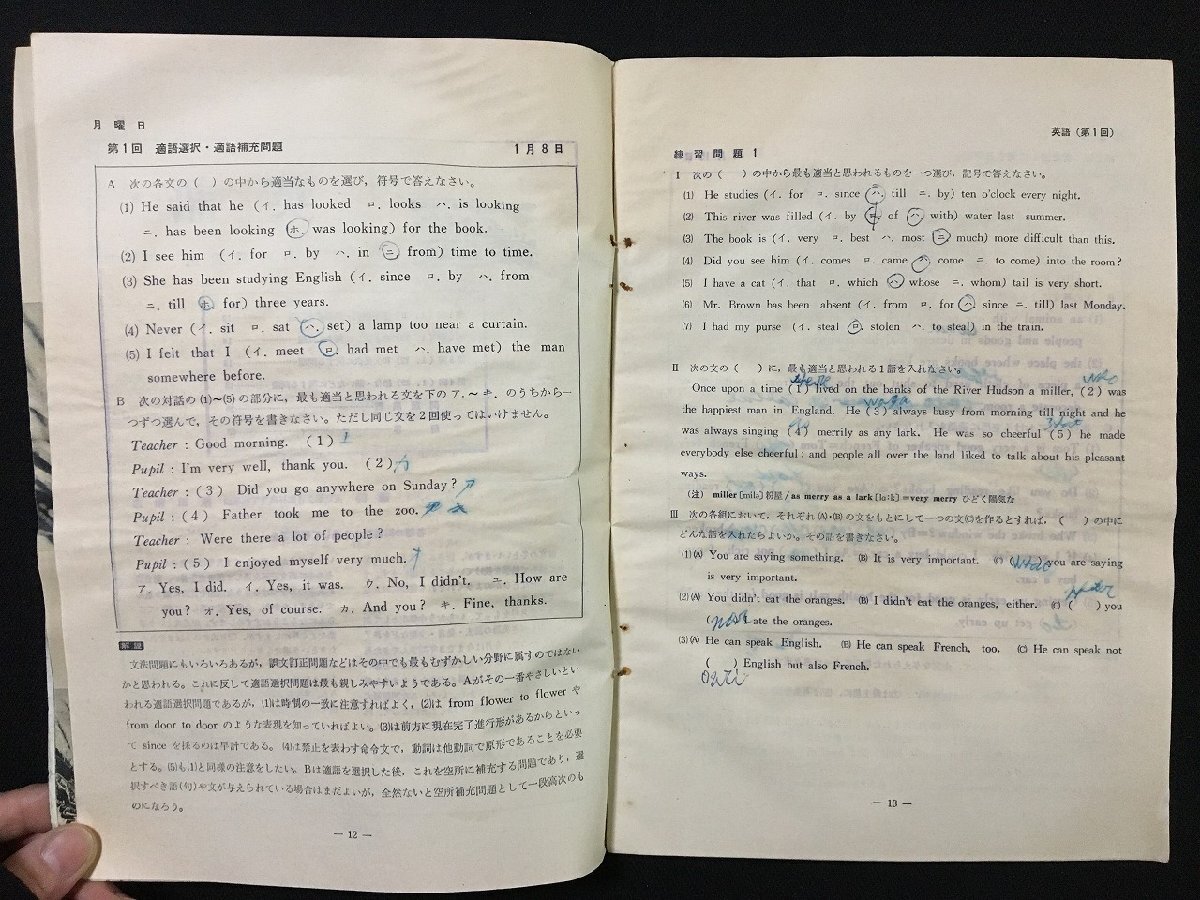 月曜日
第1回 適語選択・適語補充問題 1月8日
A 次の各文の( )の中から適当なものを選び，符号で答えなさい。
(1) He said that he (イ. has looked ロ. looks ハ. is looking
ニ. has been looking ホ. was looking) for the book.
(2) I see him (イ. for ロ. by ハ. in ニ from) time to time.
(3) She has been studying English (イ. since ロ. by ハ. from
ニ. till ホ for) three years.
(4) Never (イ. sit ロ. sat ハ. set) a lamp too near a curtain.
(5) I felt that I (イ. meet ロ had met ハ. have met) the man
somewhere before.
B 次の対話の(1)~(5)の部分に，最も適当と思われる文を下のア.~キ. のうちから一
つずつ選んで，その符号を書きなさい。ただし同じ文を2回使ってはいけません。
Teacher : Good morning. (1)
Pupil : I'm very well, thank you. (2) カ
Teacher : (3) Did you go anywhere on Sunday? ア
Pupil : (4) Father took me to the zoo.
Teacher : Were there a lot of people?
Pupil : (5) I enjoyed myself very much.
ア. Yes, I did. イ. Yes, it was. ウ. No, I didn't. エ. How are
you? オ. Yes, of course. カ. And you? キ. Fine, thanks.
解説
文法問題にもいろいろあるが，誤文訂正問題などはその中でも最もむずかしい分野に属すのではない
かと思われる。これに反して適語選択問題は最も親しみやすいようである。Aがその一番やさしいとい
われる適語選択問題であるが，(1)は時制の一致に注意すればよく，(2)は from flower to flower や
from door to door のような表現を知っていればよい。(3)は前方に現在完了進行形があるからといっ
て since を採るのは早計である。(4)は禁止を表わす命令文で，動詞は他動詞で原形であることを必要
とする。(5)も(1)と同様の注意をしたい。Bは適語を選択した後，これを空所に補充する問題であり，選
択すべき語(句)や文が与えられている場合はまだよいが，全然ないと空所補充問題として一段高次のも
のになろう。
— 12 —
英語(第1回)
練習問題 1
I 次の( )の中から最も適当と思われるものを一つ選び，記号で答えなさい。
(1) He studies (イ. for ロ. since ハ. till ニ. by) ten o'clock every night.
(2) This river was filled (イ. by ロ. of ハ with) water last summer.
(3) The book is (イ. very ロ. best ハ. most ニ much) more difficult than this.
(4) Did you see him (イ. comes ロ. came ハ come ニ. to come) into the room?
(5) I have a cat (イ. that ロ. which ハ whose ニ. whom) tail is very short.
(6) Mr. Brown has been absent (イ. from ロ. for ハ since ニ. till) last Monday.
(7) I had my purse (イ. steal ロ. stolen ハ. to steal) in the train.
II 次の文の( )に，最も適当と思われる1語を入れなさい。
Once upon a time (1) lived on the banks of the River Hudson a miller, (2) was
the happiest man in England. He (3) always busy from morning till night and he
was always singing (4) merrily as any lark. He was so cheerful (5) he made
everybody else cheerful : and people all over the land liked to talk about his pleasant
ways.
(注) miller [milə] 粉屋 / as merry as a lark [lɑːk] = very merry ひどく陽気な
III 次の各組において，それぞれ(A)・(B)の文をもとにして一つの文(C)を作るとすれば，( )の中に
どんな語を入れたらよいか。その語を書きなさい。
(1)(A) You are saying something. (B) It is very important. (C) ( ) you are saying
is very important.
(2)(A) You didn't eat the oranges. (B) I didn't eat the oranges, either. (C) ( ) you
( ) ate the oranges.
(3)(A) He can speak English. (B) He can speak French, too. (C) He can speak not
( ) English but also French.
— 13 —